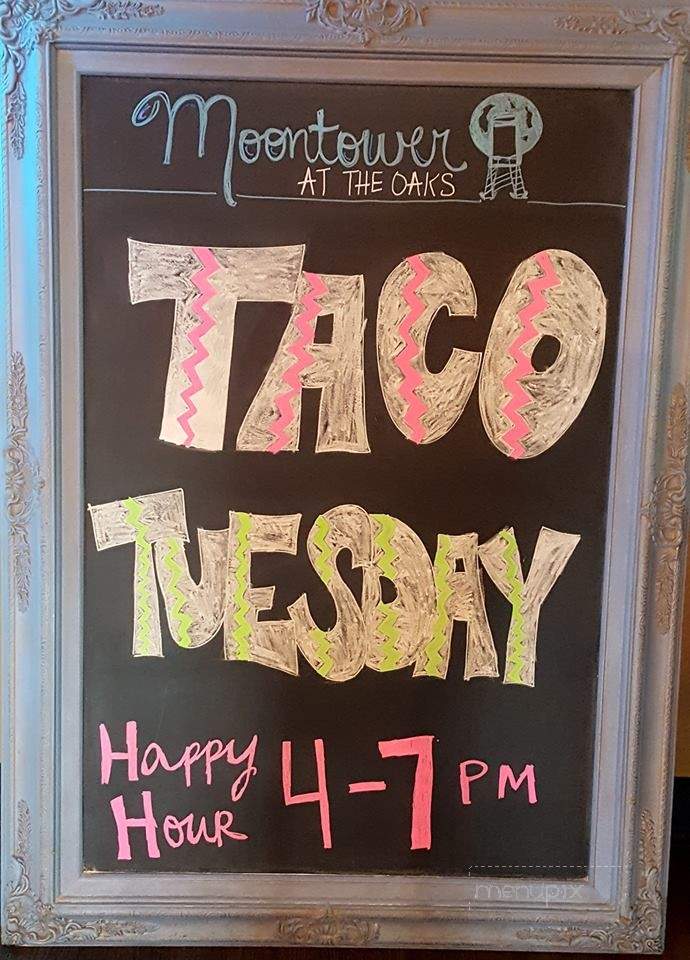 Moontower
AT THE OAKS
TACO
TUESDAY
HAPPY
HOUR
4-7 PM
menupix